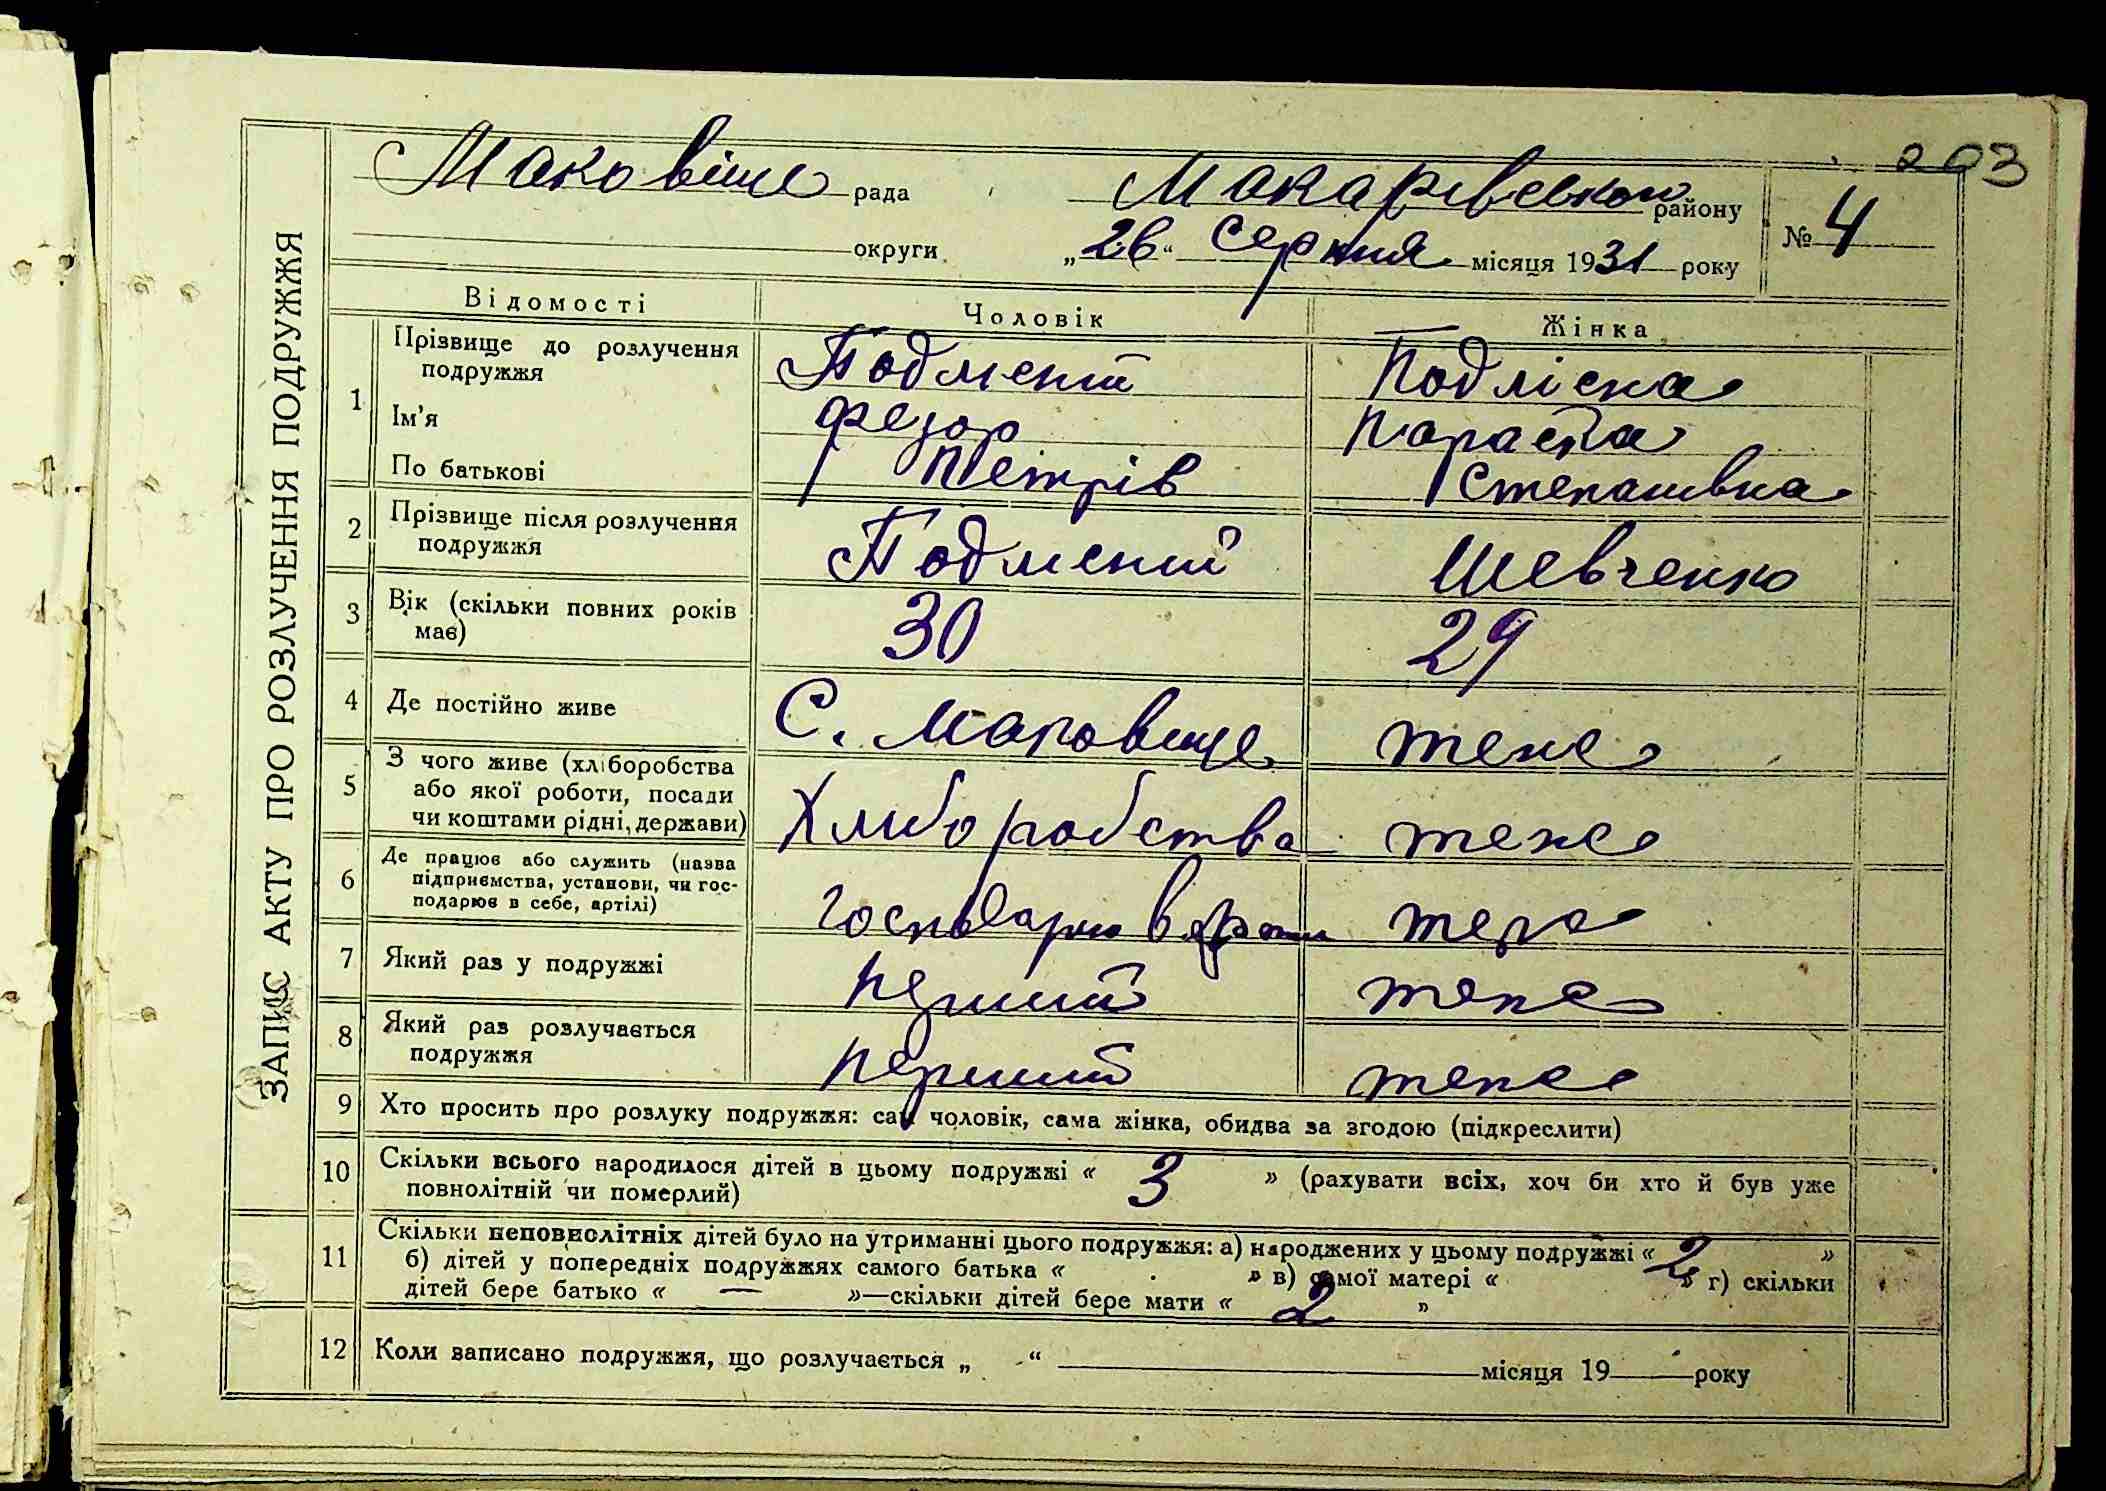 203
Маковіще рада Макарівського району № 4
округи „26“ Серпня місяця 1931 року
ЗАПИС АКТУ ПРО РОЗЛУЧЕННЯ ПОДРУЖЖЯ
Відомості Чоловік Жінка
1 Прізвище до розлучення подружжя Подлісний Подлісна
Ім'я Федор Параска
По батькові Петрів Степанівна
2 Прізвище після розлучення подружжя Подлісний Шевченко
3 Вік (скільки повних років має) 30 29
4 Де постійно живе С. Маковище теже
5 З чого живе (хліборобства або якої роботи, посади чи коштами рідні, держави) Хліборобства теже
6 Де працює або служить (назва підприємства, установи, чи господарює в себе, артілі) господарює в теже
7 Який раз у подружжі перший теже
8 Який раз розлучається подружжя перший теже
9 Хто просить про розлуку подружжя: сам чоловік, сама жінка, обидва за згодою (підкреслити)
10 Скільки всього народилося дітей в цьому подружжі « 3 » (рахувати всіх, хоч би хто й був уже
повнолітній чи померлий)
11 Скільки неповнолітніх дітей було на утриманні цього подружжя: а) народжених у цьому подружжі « 2 »
б) дітей у попередніх подружжях самого батька « » в) самої матері « » г) скільки
дітей бере батько « — »—скільки дітей бере мати « 2 »
12 Коли записано подружжя, що розлучається „ “ місяця 19 року